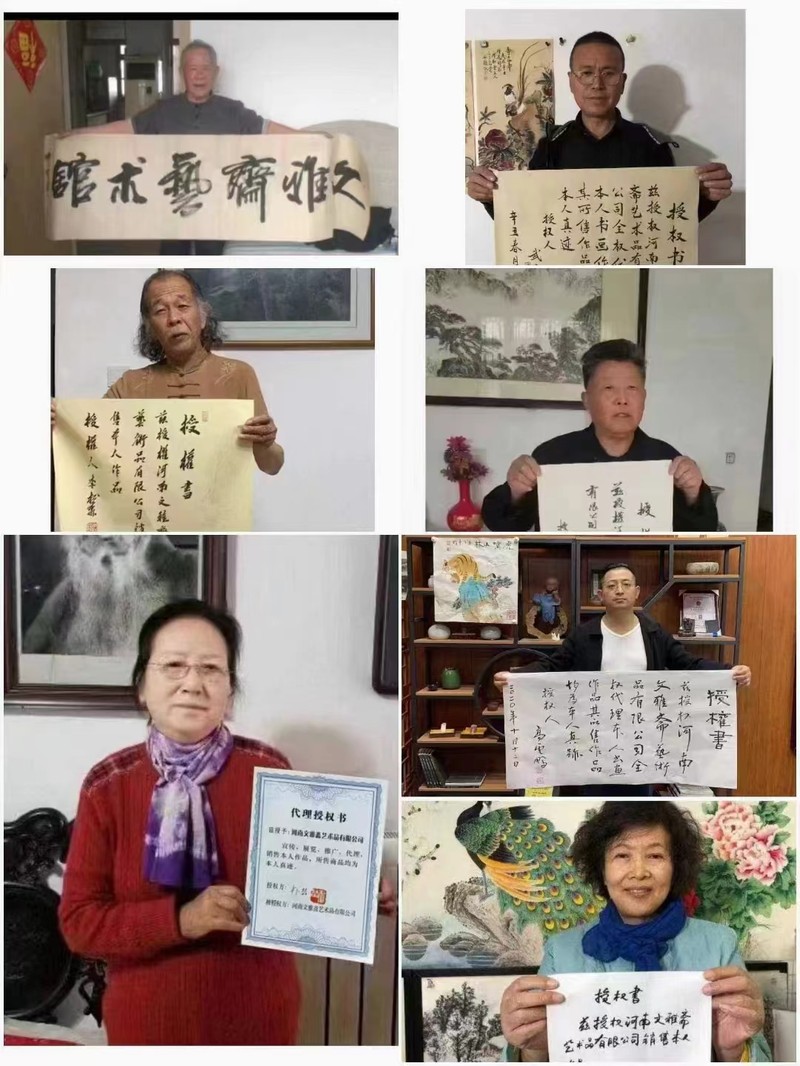 福
文雅齋藝术館
授权书
兹授权河南
斋艺术品有
公司全权
本人书画作
其所售作品
本人真迹
授权人 武
辛丑春月
授權書
茲授權河南文雅
藝術品有限公司
售本人作品
授權人 李松
授
兹授权
有限公司
代理授权书
兹授予：河南文雅斋艺术品有限公司
宣传、展览、推广、代理、
销售本人作品，所售商品均为
本人真迹。
授权方：
被授权方：河南文雅斋艺术品有限公司
授權書
我授权河南
文雅斋艺術
品有限公司全
权代理本人书画
作品其所售作品
均为本人真跡
授权人 高
二〇二〇年十月十二日
授权书
兹授权河南文雅斋
艺术品有限公司销售本人